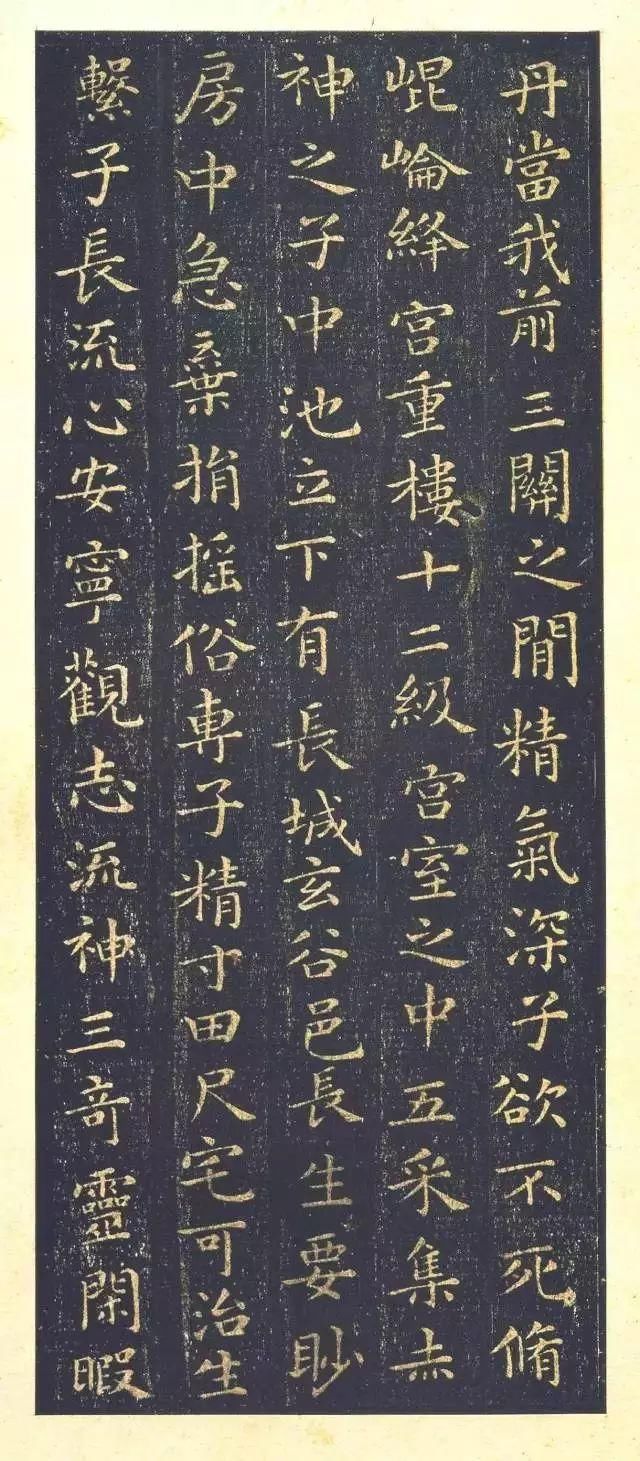 丹當我前三關之間精氣深子欲不死脩
崐崘絳宮重樓十二級宮室之中五采集赤
神之子中池立下有長城玄谷邑長生要眇
房中急棄捐搖俗專子精寸田尺宅可治生
繫子長流心安寧觀志流神三奇靈閑暇